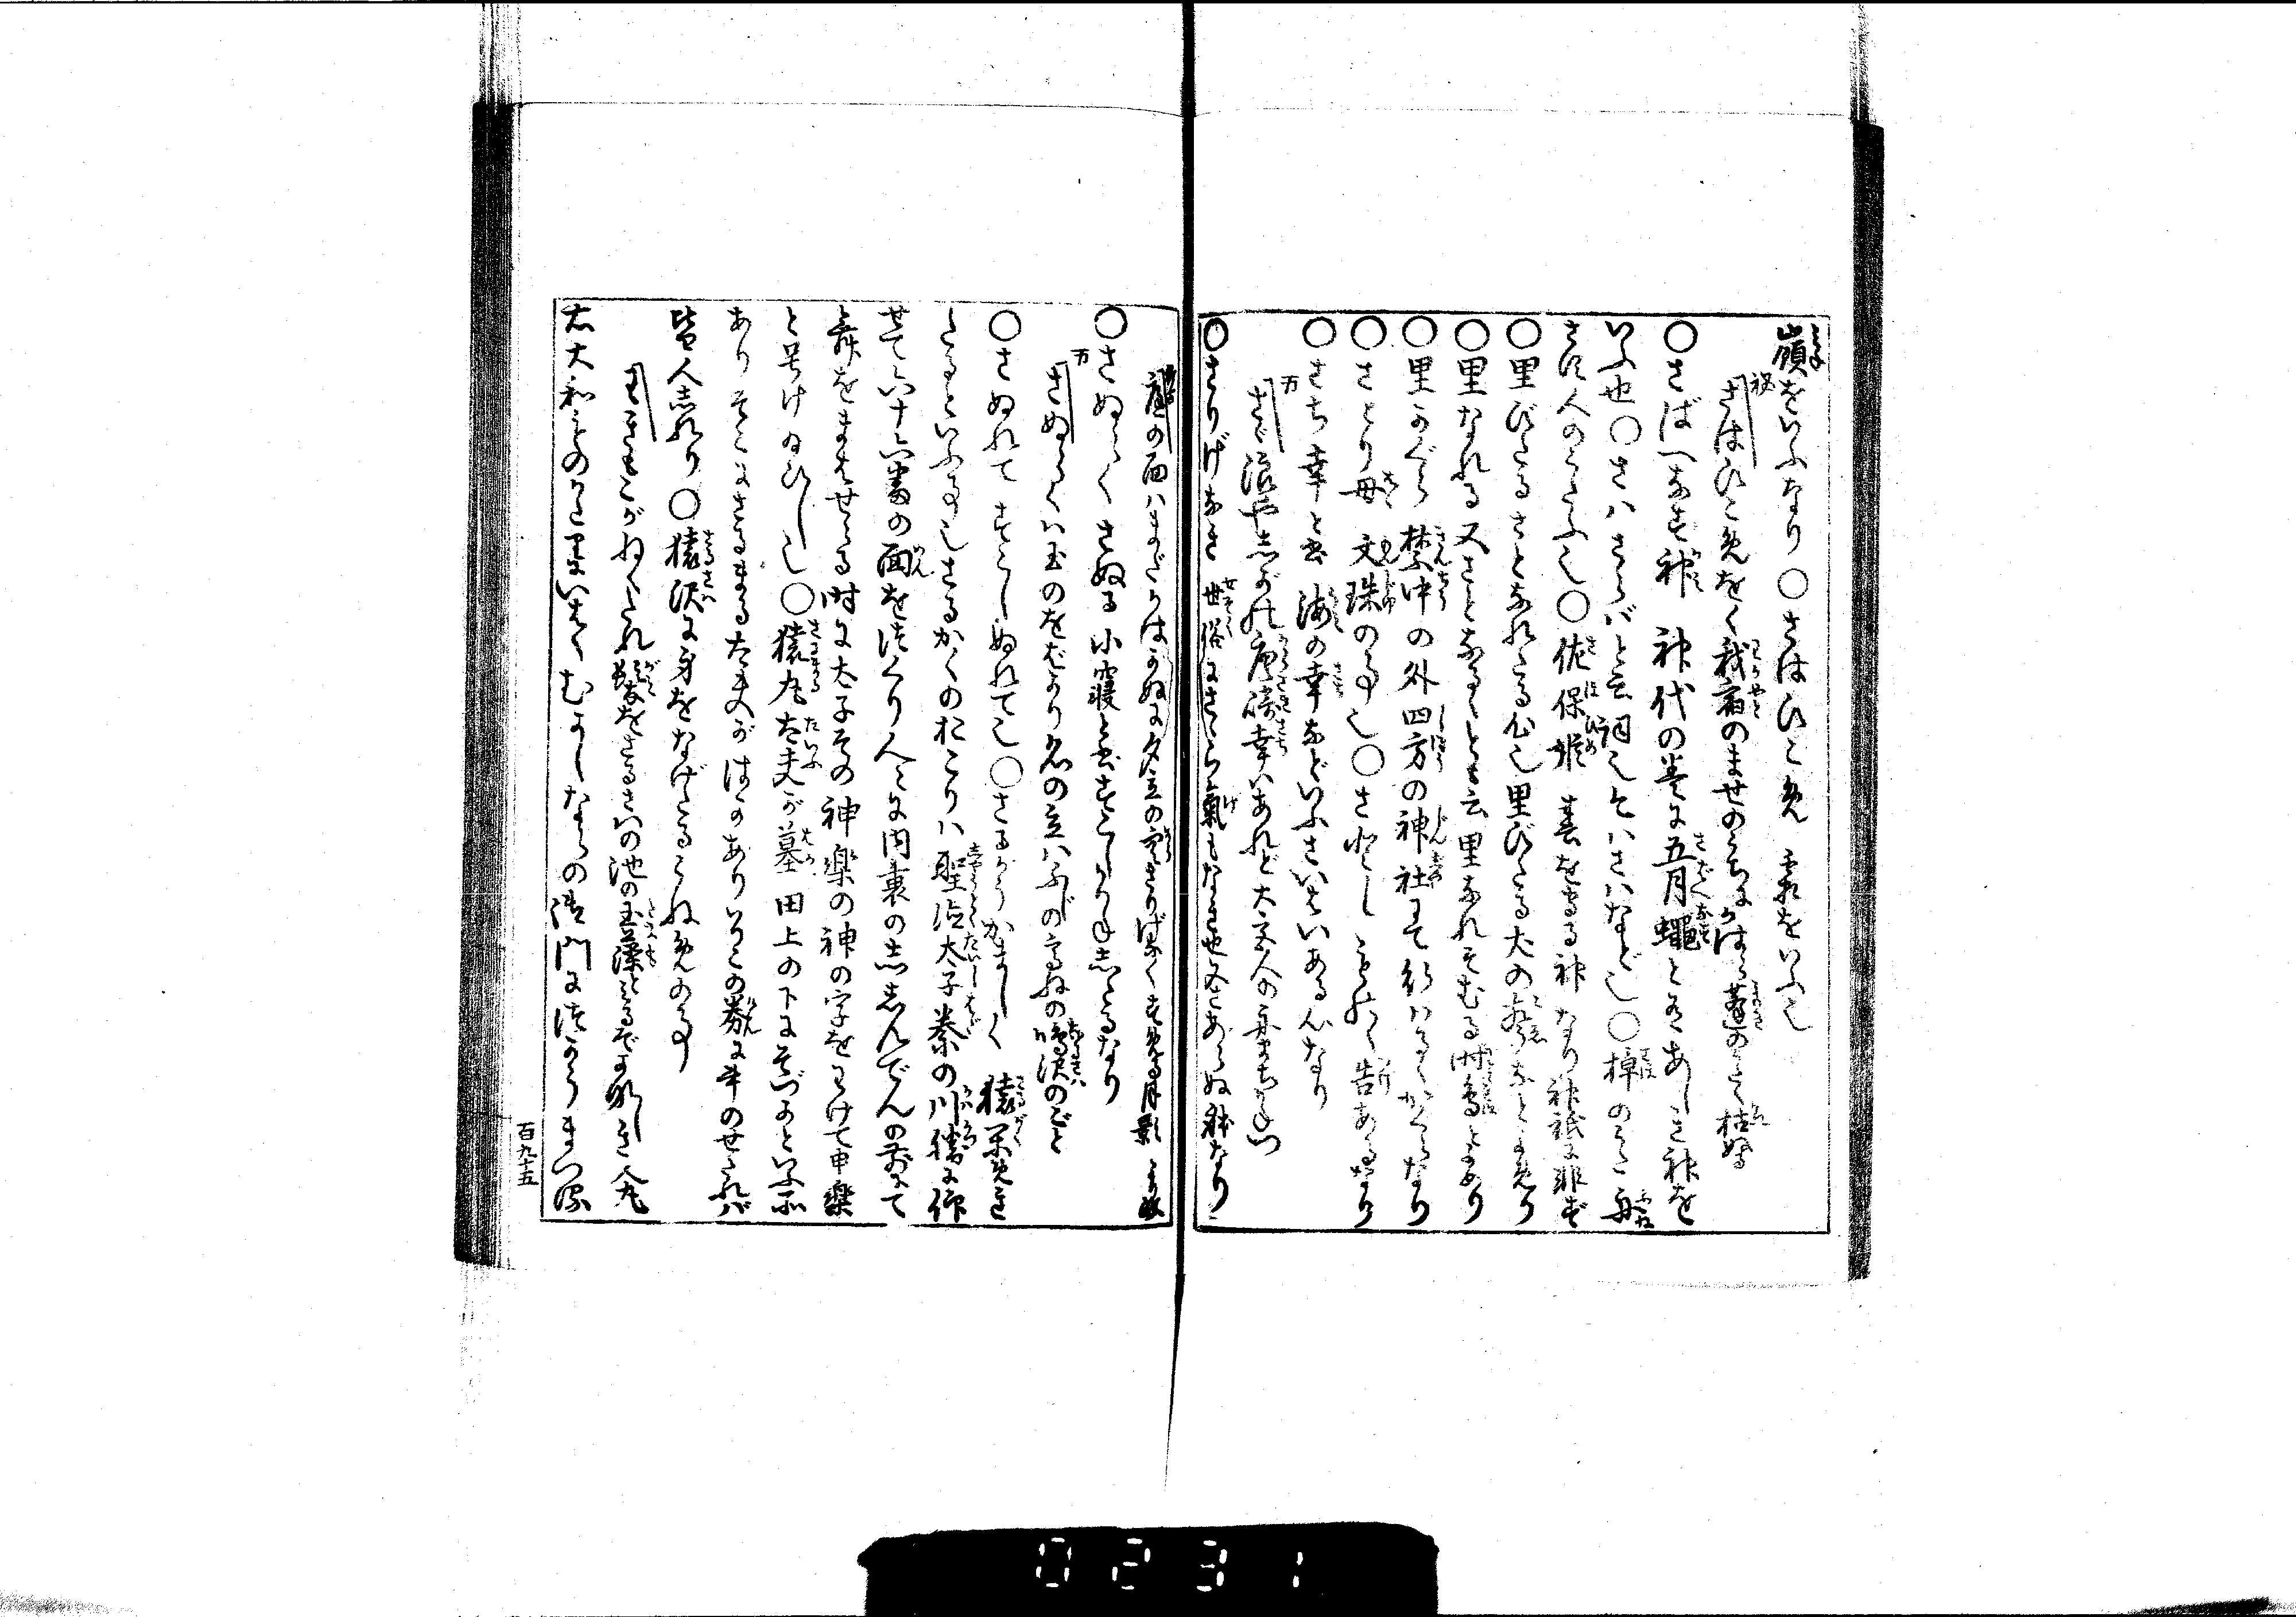 嶺をいふなり○さはひこめ 霜をいふ也
さはひこめをく我宿のませのうちに
○さばへなす神 神代の巻に五月蠅とて有あしき神を
いふ也○さハさらバと云詞也 又ハさハなど也○棹のうた 舟
さす人のうたふ也○佐保姫 春を守る神なり 神祇に非ず
○里びたる さとなれたる心也 里びたる犬の聲などよめり
○里なれる 又さとなるゝとも云 里なれそむる時鳥とよめり
○里かぐら 禁中の外四方の神社にて行ハるゝかぐらなり
○さとり母 文珠の事也○さとし ものゝ告あるなり
○さち 幸と書 海の幸などいふ さいはいある心なり
さゞ浪や志がの唐崎幸ハあれど大宮人の舟まちかねつ
○さりげなき 世俗にさらぬ氣もなき也 さあらぬ躰なり
庭の面ハまだかはかぬに夕立の空さりげなくすめる月影 頼政
○さぬらく さぬる 小寝と書 すこしかりね志たるなり
さぬらくハ玉のをばかり名の立ハふじの高ねの鳴沢のごと
○さぬれて すこしぬれて也○さるがうかましく 猿楽めき
たるといふ事也 さるがくのおこりハ聖徳太子秦の川勝に仰
せて六十六番の面を作り人々に内裏の志しんでんの前にて
舞をまはせらるゝ時に太子その神楽の神の字をわけて申楽
と号けゐひし也○猿丸太夫が墓 田上の下にそづかといふ所
あり そこにさるまる太夫がはかあり いりこの券に其のせたれバ
皆人志れり○猿沢に身をなげたるうねめの事
わぎもこがねくたれ髪をさるさハの池の玉藻とみるぞかなしき 人丸
右大和ものがたりにいはく むかしならの御門につかうまつる
百九十五
0231